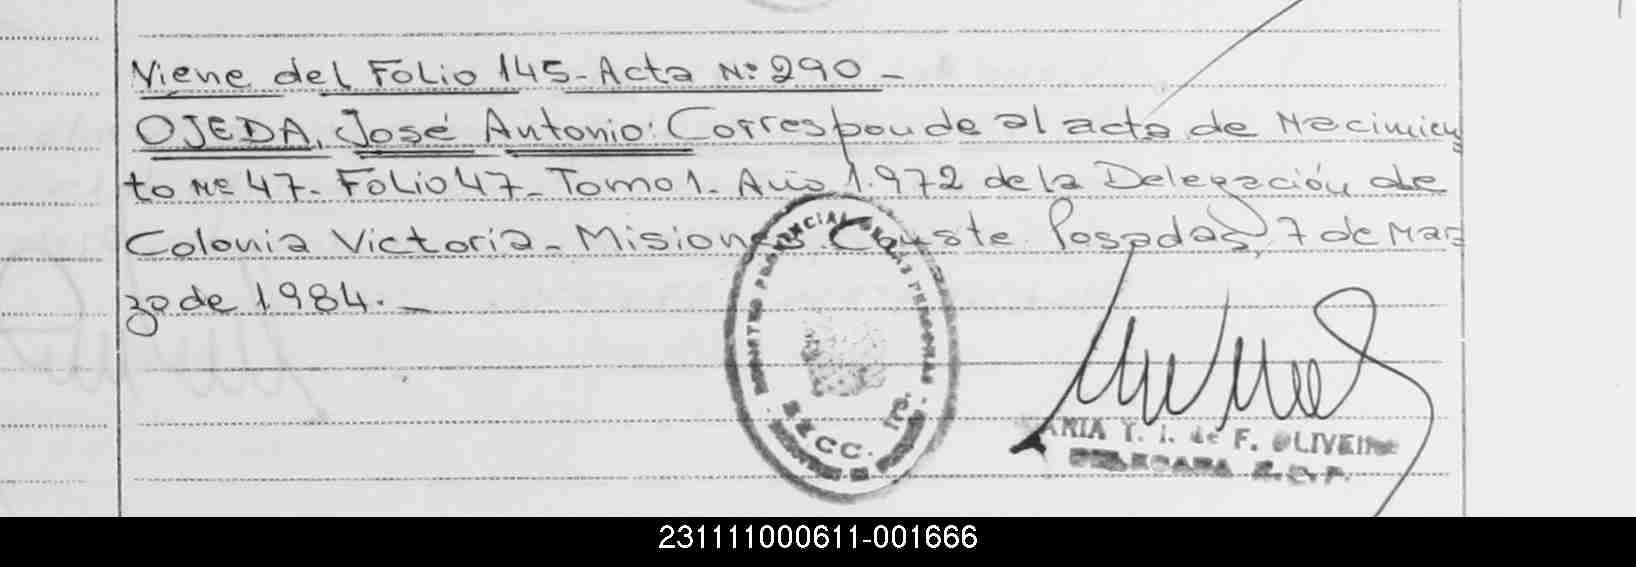 Viene del Folio 145-Acta Nº 290 -
OJEDA, José Antonio: Corresponde al acta de Nacimien
to Nº 47- Folio 47- Tomo 1- Año 1.972 de la Delegación de
Colonia Victoria- Misiones. Conste. Posadas, 7 de Mar
zo de 1984. -
PROVINCIAL DE LAS PERSONAS
T. I. de F. OLIVEIRA
231111000611-001666